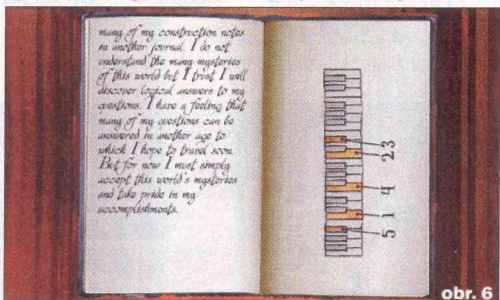 many of my construction notes
in another journal. I do not
understand the many mysteries
of this world but I trust I will
discover logical answers to my
questions. I have a feeling that
many of my questions can be
answered in another age to
which I hope to travel soon.
But for now I must simply
accept this world's mysteries
and take pride in my
accomplishments.
2 3
4
1
5
obr. 6